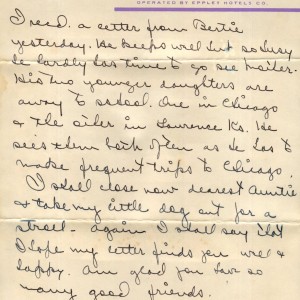 OPERATED BY EPPLEY HOTELS CO.
I recd. a letter from Bertie
yesterday. He keeps well but so busy
he hardly has time to go see
His two younger daughters are
away to school. One in Chicago
& the other in Lawrence Ks. He
sees them both often as he has to
make frequent trips to Chicago.
I shall close now dearest Auntie
& take my little dog out for a
stroll - again I shall say that
I hope my letter finds you well &
happy. Am glad you have so
many good friends.